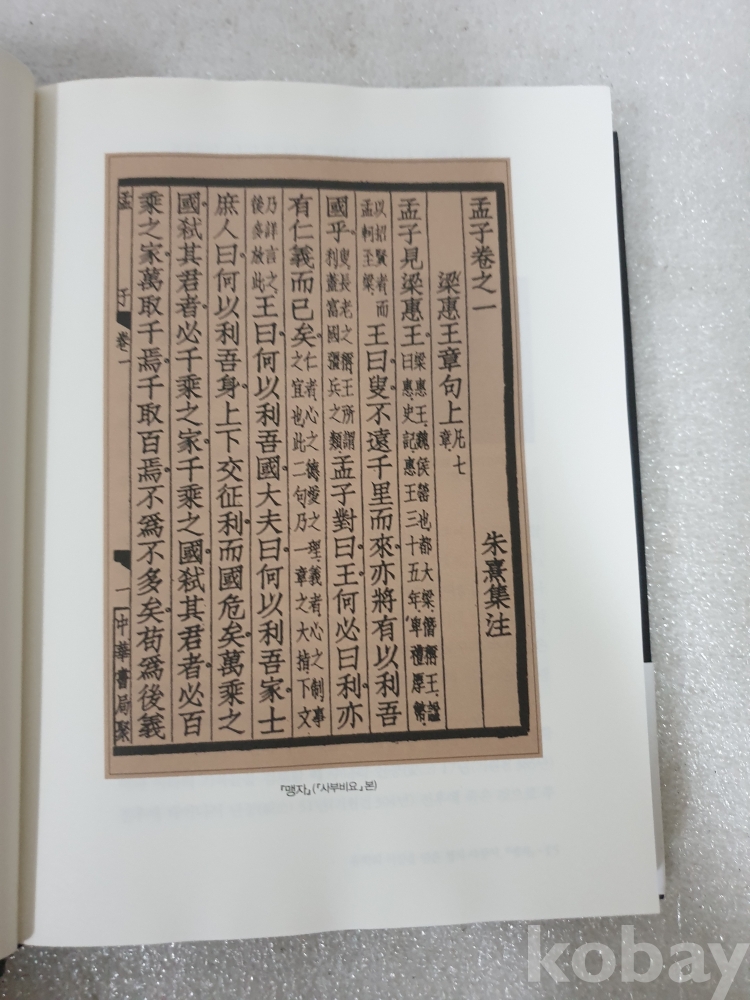 孟子卷之一
朱熹集注
梁惠王章句上 凡七章
孟子見梁惠王 梁惠王魏侯罃也都大梁僭稱王謚曰惠史記惠王三十五年卑禮厚幣
以招賢者而孟軻至梁 王曰叟不遠千里而來亦將有以利吾
國乎 叟長老之稱王所謂利蓋富國彊兵之類 孟子對曰王何必曰利亦
有仁義而已矣 仁者心之德愛之理義者心之制事之宜也此二句乃一章之大指下文
乃詳言之後多放此 王曰何以利吾國大夫曰何以利吾家士
庶人曰何以利吾身上下交征利而國危矣萬乘之
國弒其君者必千乘之家千乘之國弒其君者必百
乘之家萬取千焉千取百焉不爲不多矣苟爲後義
孟子 卷一
一 中華書局聚
『맹자』(『사부비요』본)
kobay